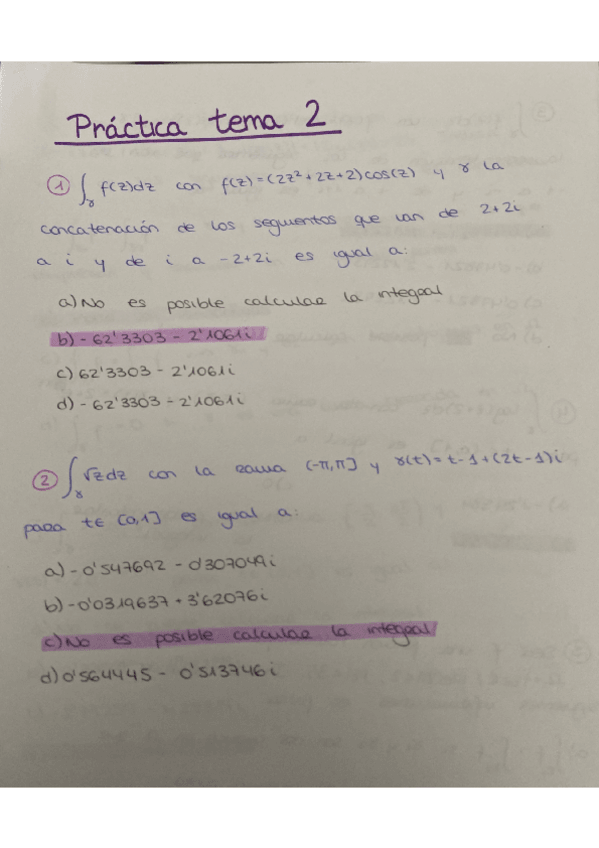 Práctica tema 2
① ∫γ f(z)dz con f(z)=(2z²+2z+2)cos(z) y γ la
concatenación de los segmentos que van de 2+2i
a i y de i a -2+2i es igual a:
a) No es posible calcular la integral
b) - 62'3303 - 2'1061i
c) 62'3303 - 2'1061i
d) - 62'3303 - 2'1061i
② ∫γ √z dz con la rama (-π,π] y γ(t)=t-1+(2t-1)i
para t∈[0,1] es igual a:
a) -0'547692 - 0'307049i
b) -0'0319637 + 3'62076i
c) No es posible calcular la integral
d) 0'564445 - 0'513746i